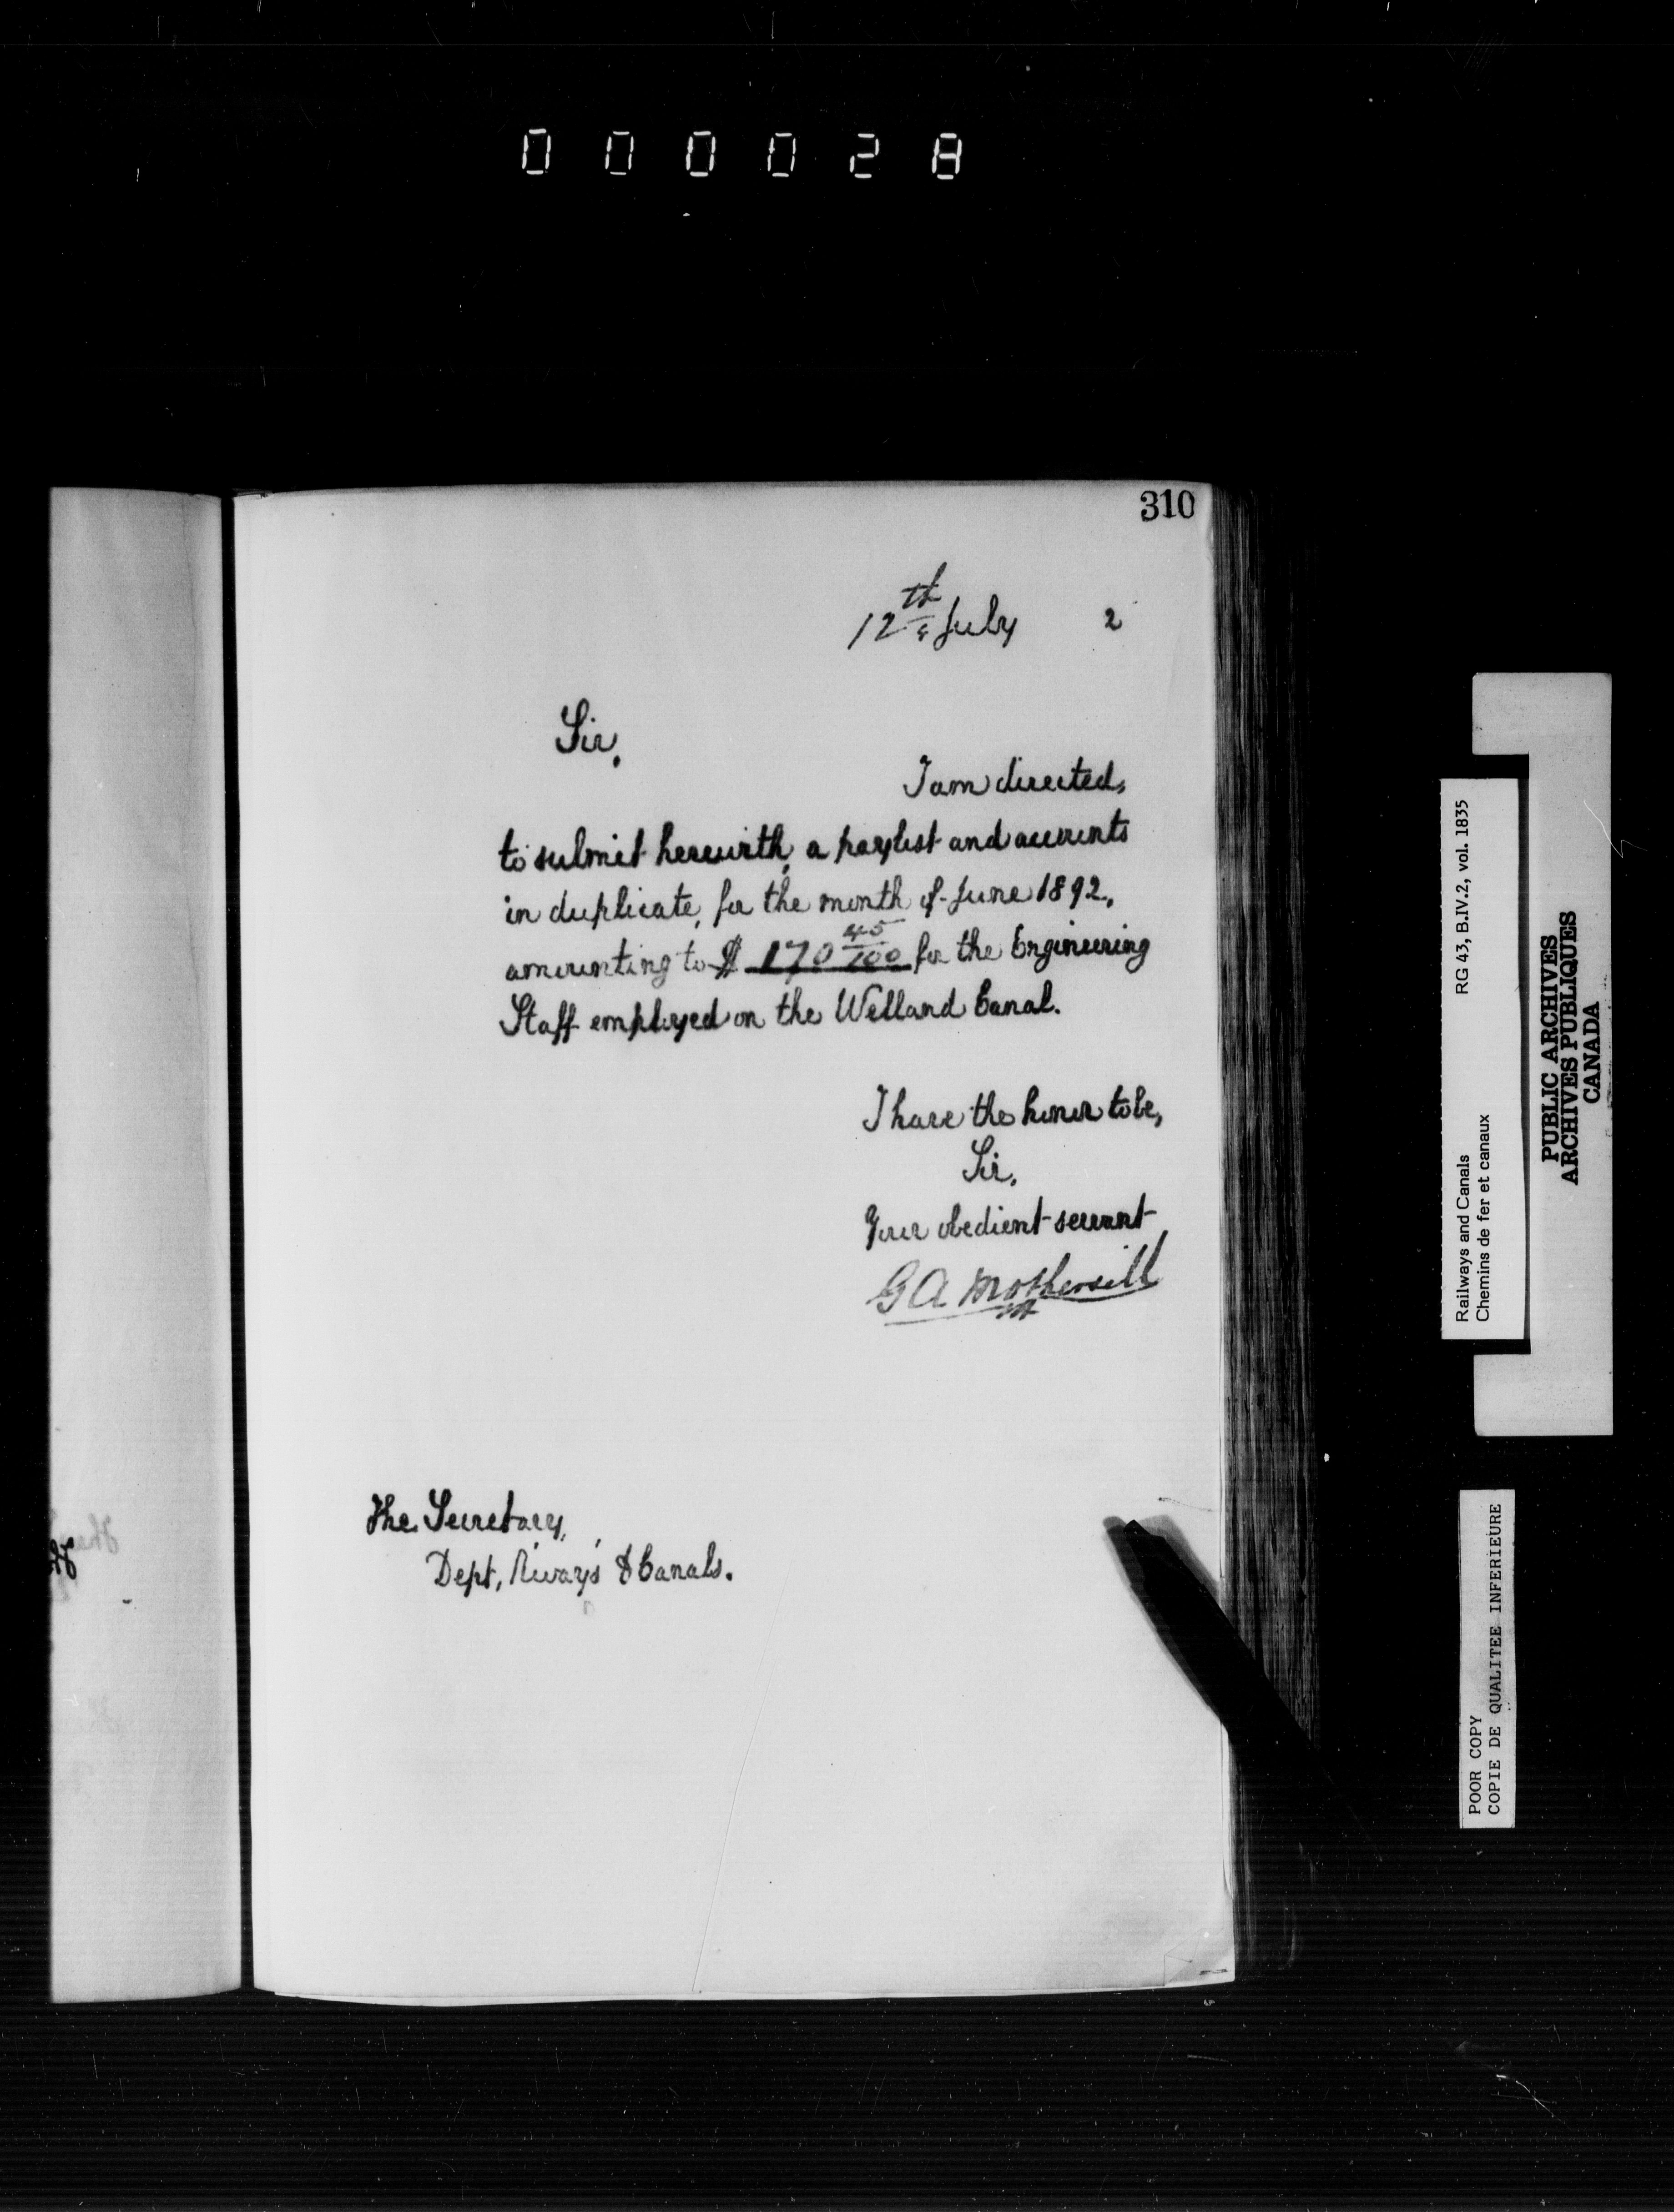 000028
310
12th July 2
Sir,
I am directed,
to submit herewith, a paylist and accounts
in duplicate, for the month of June 1892,
amounting to $ 170 45/100 for the Engineering
Staff employed on the Welland Canal.
I have the honor to be,
Sir,
Your obedient servant
G A Mothersill
The Secretary,
Dept, Rways & Canals.
Railways and Canals RG 43, B.IV.2, vol. 1835
Chemins de fer et canaux
PUBLIC ARCHIVES
ARCHIVES PUBLIQUES
CANADA
POOR COPY
COPIE DE QUALITEE INFERIEURE